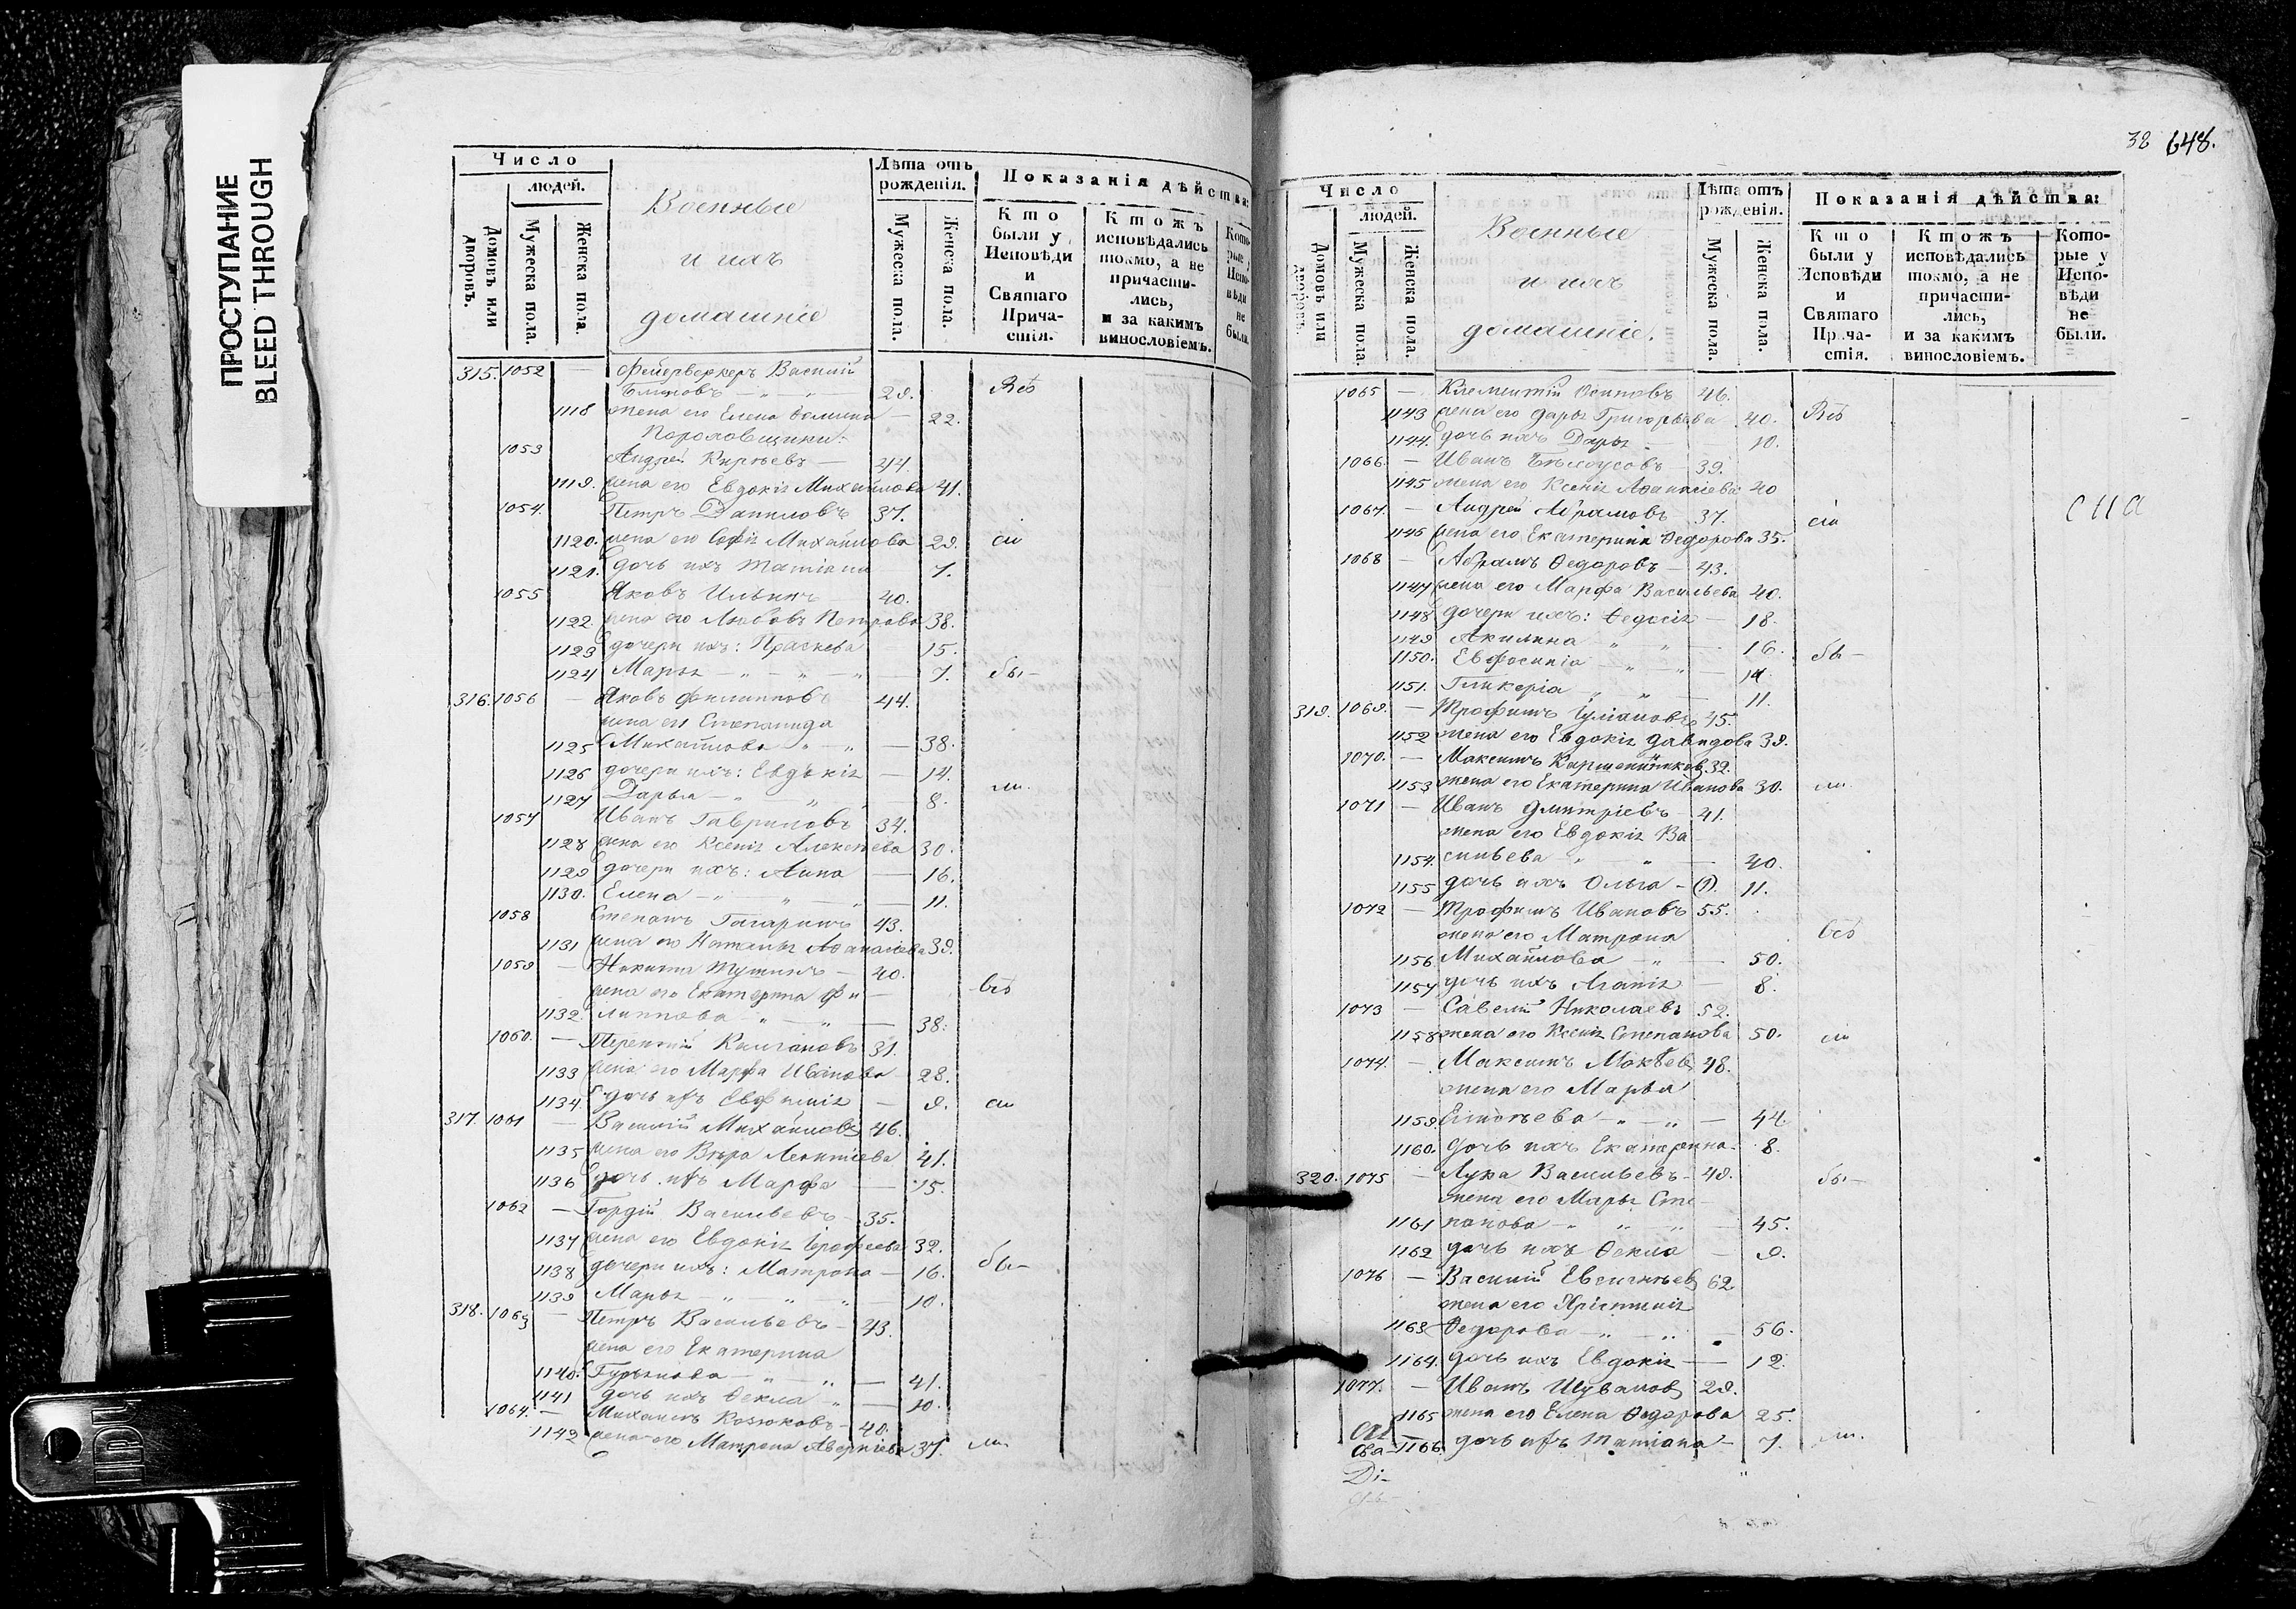 ПРОСТУПАНИЕ
BLEED THROUGH
Число
людей.
Домовъ или дворовъ.
Мужеска пола.
Женска пола.
Военные
и ихъ
домашніе
Лѣта отъ рожденія.
Мужеска пола.
Женска пола.
Показанія дѣйства:
Кто были у Исповѣди и Святаго Причастія.
Ктожъ исповѣдались токмо, а не причастились, и за какимъ винословіемъ.
Которые у Исповѣди не были.
315. 1052 — фейерверкеръ Василій
Блиновъ 29. Всѣ
1118 жена его Елена Фомина — 22.
Пороховщики:
1053 Андрей Кирѣевъ — 44.
1119. жена его Евдокія Михайлова 41.
1054. Петръ Даниловъ 37.
1120. жена его Софія Михайлова 29. сіи
1121. дочь ихъ Татіана 7.
1055 Яковъ Ильинъ 40.
1122. жена его Любовь Петрова 38.
1123 дочери ихъ: Прасковья 15.
1124 Марья 7. бы-
316. 1056 — Яковъ Филиповъ 44.
жена его Степанида
1125 Михайлова — 38.
1126 дочери ихъ: Евдокія — 14.
1127 Дарья 8. ли.
1057 Иванъ Гавриловъ 34.
1128 жена его Ксенія Алексѣева 30.
1129 дочери ихъ: Анна — 16.
1130. Елена 11.
1058 Степанъ Гагаринъ 43.
1131 жена его Наталья Афанасьева 39.
1059 — Никита Тутинъ — 40.
жена его Екатерина Фи— всѣ
1132. липпова 38.
1060. — Терентій Калгановъ 31.
1133 жена его Марфа Иванова 28.
1134. дочь ихъ Евфимія — 9. сіи
317. 1061 — Василій Михайловъ 46.
1135 жена его Вѣра Леонтіева 41.
1136 дочь ихъ Марфа — 15.
1062 — Гордій Васильевъ 35.
1137 жена его Евдокія Ерофеева 32.
1138 дочери ихъ: Матрона — 16. бы-
1139 Марья 10.
318. 1063 — Петръ Васильевъ 43.
жена его Екатерина
1140. Гурьянова — 41.
1141 дочь ихъ Ѳекла — 10.
1064. — Михаилъ Козюковъ 40.
1142 жена его Матрона Аверкіева 37. ли.
38 648.
Число
людей.
Домовъ или дворовъ.
Мужеска пола.
Женска пола.
Военные
и ихъ
домашніе.
Лѣта отъ рожденія.
Мужеска пола.
Женска пола.
Показанія дѣйства:
Кто были у Исповѣди и Святаго Причастія.
Ктожъ исповѣдались токмо, а не причастились, и за какимъ винословіемъ.
Которые у Исповѣди не были.
1065 — Климентій Осиповъ 46.
1143 жена его Дарья Григорьева 40. Всѣ
1144. дочь ихъ Дарья 10.
1066. — Иванъ Бѣлоусовъ 39.
1145 жена его Ксенія Афанасіева 40
1067. — Андрей Абрамовъ 37. сіи
1146 жена его Екатерина Ѳедорова 35.
1068 — Абрамъ Ѳедоровъ — 43.
1147 жена его Марфа Васильева 40.
1148 дочери ихъ: Ѳедосія — 18.
1149 Акилина 16.
1150. Евфросинія 14 бы—
1151. Гликерія 11.
319. 1069. — Трофимъ Іуліановъ 45.
1152 жена его Евдокія Давидова 39.
1070. — Максимъ 32.
1153 жена его Екатерина Иванова 30. ли.
1071 — Иванъ Дмитріевъ 41.
жена его Евдокія Ва
1154. сильева — 40.
1155 дочь ихъ Ольга 11.
1072 — Трофимъ Ивановъ 55.
жена его Матрона всѣ
1156 Михайлова 50.
1157 дочь ихъ Агапія — 8.
1073 — Савелій Николаевъ 52.
1158 жена его Ксенія Степанова 50. сіи
1074. — Максимъ Мокѣевъ 48.
жена его Марья
1159. 44
1160. дочь ихъ Екатерина 8.
320. 1075 — Лука Васильевъ 49. бы—
жена его Марья Сте—
1161 панова 45.
1162 дочь ихъ Ѳекла — 9.
1076 — Василій Евсигнѣевъ 62
жена его Христинія
1163 Ѳедорова 56.
1164. дочь ихъ Евдокія — 12.
1077. — Иванъ Шуваловъ 29.
1165 жена его Елена Ѳедорова 25.
1166. дочь ихъ Татіана — 7. ли.